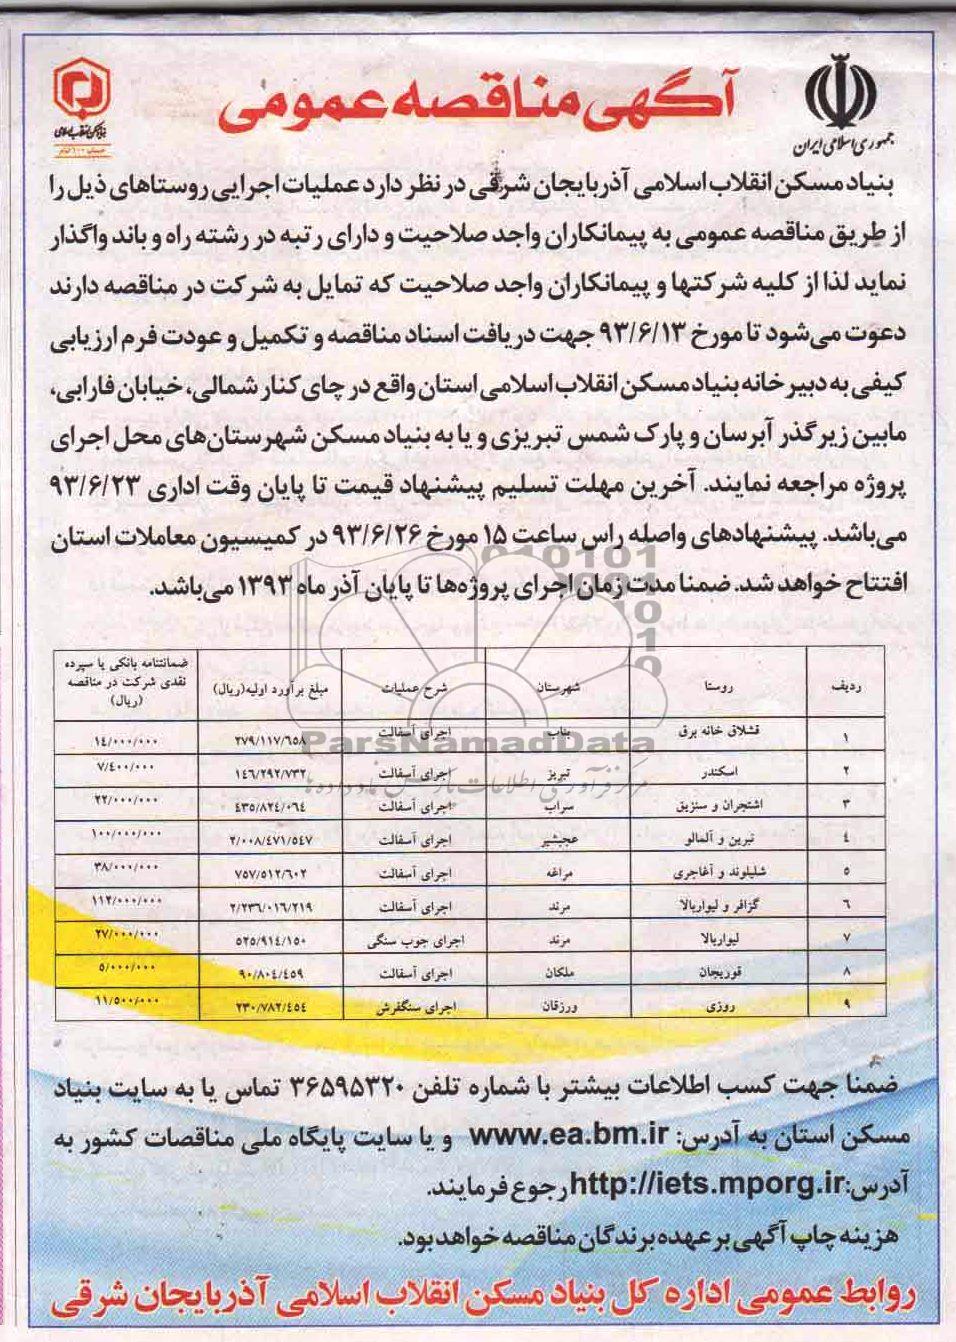 آگهی مناقصه عمومی
جمهوری اسلامی ایران
بنیاد مسکن انقلاب اسلامی
بنیاد مسکن انقلاب اسلامی آذربایجان شرقی در نظر دارد عملیات اجرایی روستاهای ذیل را
از طریق مناقصه عمومی به پیمانکاران واجد صلاحیت و دارای رتبه در رشته راه و باند واگذار
نماید لذا از کلیه شرکتها و پیمانکاران واجد صلاحیت که تمایل به شرکت در مناقصه دارند
دعوت می‌شود تا مورخ ۹۳/۶/۱۳ جهت دریافت اسناد مناقصه و تکمیل و عودت فرم ارزیابی
کیفی به دبیرخانه بنیاد مسکن انقلاب اسلامی استان واقع در چای کنار شمالی، خیابان فارابی،
مابین زیرگذر آبرسان و پارک شمس تبریزی و یا به بنیاد مسکن شهرستان‌های محل اجرای
پروژه مراجعه نمایند. آخرین مهلت تسلیم پیشنهاد قیمت تا پایان وقت اداری ۹۳/۶/۲۳
می‌باشد. پیشنهادهای واصله راس ساعت ۱۵ مورخ ۹۳/۶/۲۶ در کمیسیون معاملات استان
افتتاح خواهد شد. ضمنا مدت زمان اجرای پروژه‌ها تا پایان آذر ماه ۱۳۹۳ می‌باشد.
ردیف روستا شهرستان شرح عملیات مبلغ برآورد اولیه(ریال) ضمانتنامه بانکی یا سپرده نقدی شرکت در مناقصه (ریال)
۱ قشلاق خانه برق بناب اجرای آسفالت ۲۷۹/۱۱۷/۶۵۸ ۱٤/۰۰۰/۰۰۰
۲ اسکندر تبریز اجرای آسفالت ۱٤٦/۲۹۲/۷۳۲ ۷/٤۰۰/۰۰۰
۳ اشتجران و سنزیق سراب اجرای آسفالت ٤۳۵/۸۲٤/۰٦٤ ۲۲/۰۰۰/۰۰۰
٤ نبرین و آلمالو عجبشیر اجرای آسفالت ۲/۰۰۸/٤۷۱/۵٤۷ ۱۰۰/۰۰۰/۰۰۰
۵ شلیلوند و آغاجری مراغه اجرای آسفالت ۷۵۷/۵۱۲/٦۰۲ ۳۸/۰۰۰/۰۰۰
٦ گزافر و لیواربالا مرند اجرای آسفالت ۲/۲۳٦/۰۱٦/۲۱۹ ۱۱۲/۰۰۰/۰۰۰
۷ لیواربالا مرند اجرای جوب سنگی ۵۲۵/۹۱٤/۱۵۰ ۲۷/۰۰۰/۰۰۰
۸ قوریجان ملکان اجرای آسفالت ۹۰/۸۰٤/٤۵۹ ۵/۰۰۰/۰۰۰
۹ روزی ورزقان اجرای سنگفرش ۲۳۰/۷۸۲/٤۵٤ ۱۱/۵۰۰/۰۰۰
ParsNamadData
ضمنا جهت کسب اطلاعات بیشتر با شماره تلفن ۳۶۵۹۵۳۲۰ تماس یا به سایت بنیاد
مسکن استان به آدرس: www.ea.bm.ir و یا سایت پایگاه ملی مناقصات کشور به
آدرس:http://iets.mporg.ir رجوع فرمایند.
هزینه چاپ آگهی بر عهده برندگان مناقصه خواهد بود.
روابط عمومی اداره کل بنیاد مسکن انقلاب اسلامی آذربایجان شرقی